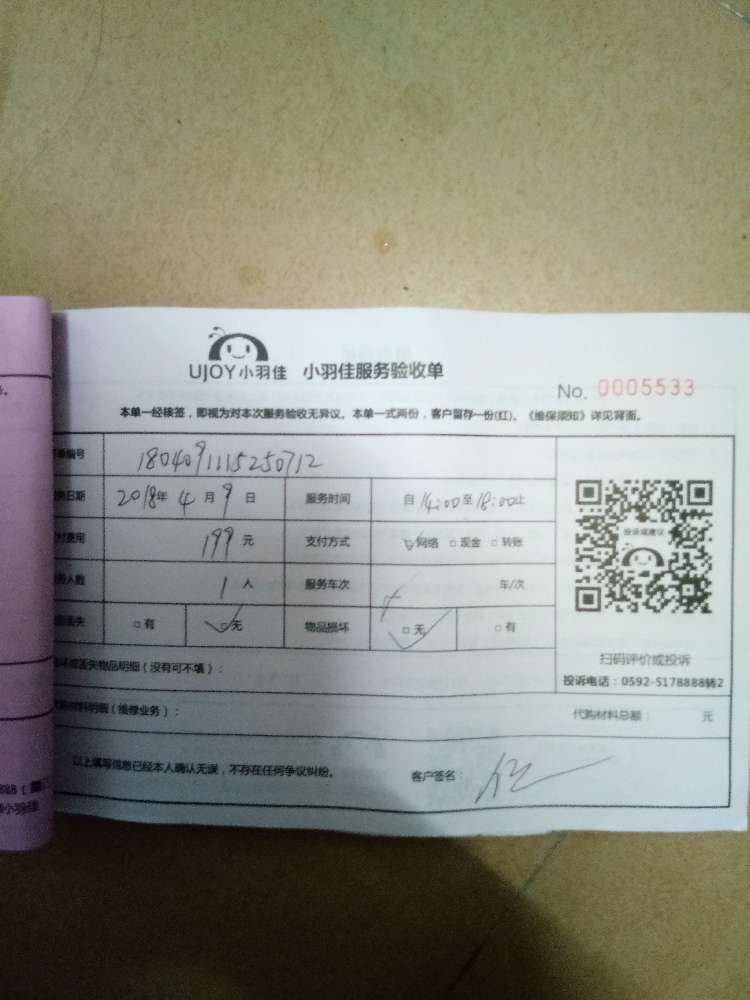 UJOY小羽佳 小羽佳服务验收单
No. 0005533
本单一经核签，即视为对本次服务验收无异议。本单一式两份，客户留存一份(红)。《维保须知》详见背面。
编号 1804091115250712
日期 2018年 4 月 9 日 服务时间 自 14:00 至 18:00 止
费用 199 元 支付方式 □网络 □现金 □转账
人数 1 人 服务车次 车/次
丢失 □有 □无 物品损坏 □无 □有
投诉或建议
扫码评价或投诉
投诉电话：0592-5178888转2
丢失物品明细（没有可不填）：
材料明细（维修业务）： 代购材料总额： 元
以上填写信息已经本人确认无误，不存在任何争议纠纷。 客户签名：
小羽佳